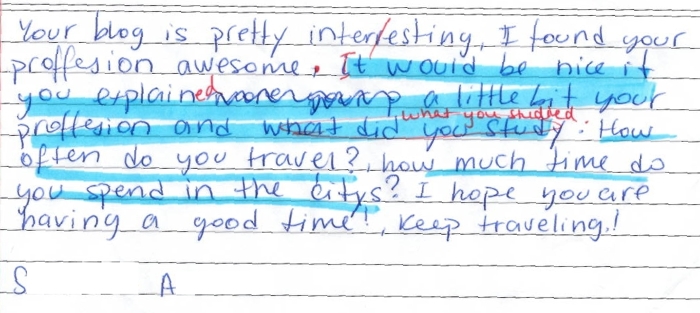 Your blog is pretty interfesting, I found your
proffesion awesome. It would be nice if
you explained a little bit your
what you studied
proffesion and what did you study. How
often do you travel?, how much time do
you spend in the citys? I hope you are
having a good time!, keep traveling!
S A